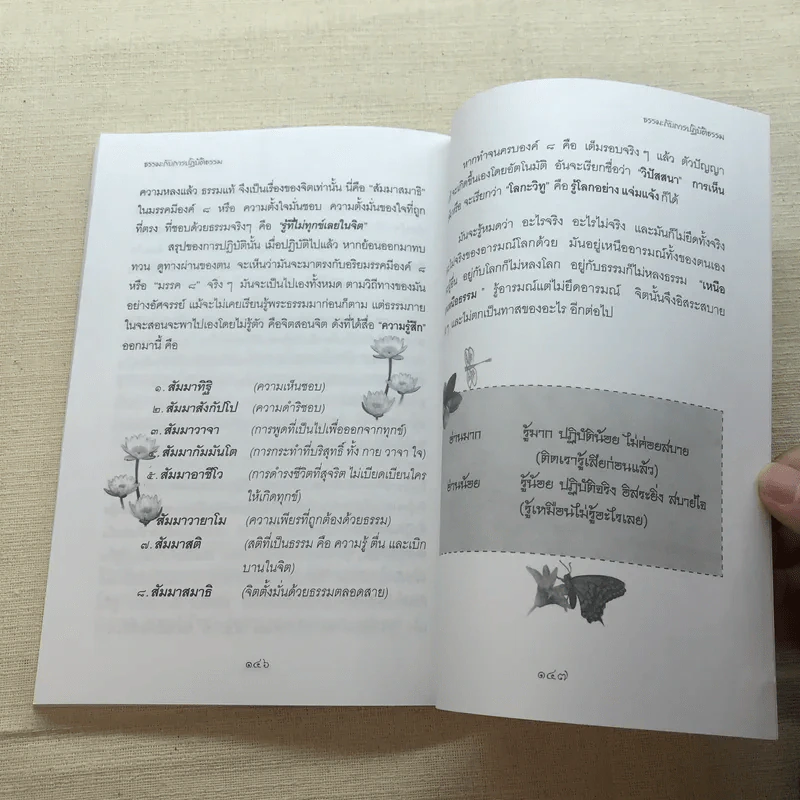 ธรรมะกับการปฏิบัติธรรม
ความหลงแล้ว ธรรมแท้ จึงเป็นเรื่องของจิตเท่านั้น นี่คือ "สัมมาสมาธิ"
ในมรรคมีองค์ ๘ หรือ ความตั้งใจมั่นชอบ ความตั้งมั่นของใจที่ถูก
ที่ตรง ที่ชอบด้วยธรรมจริงๆ คือ "รู้ที่ไม่ทุกข์เลยในจิต"
สรุปของการปฏิบัตินั้น เมื่อปฏิบัติไปแล้ว หากย้อนออกมาทบ
ทวน ดูทางผ่านของตน จะเห็นว่ามันจะมาตรงกับอริยมรรคมีองค์ ๘
หรือ "มรรค ๘" จริงๆ มันจะเป็นไปเองทั้งหมด ตามวิถีทางของมัน
อย่างอัศจรรย์ แม้จะไม่เคยเรียนรู้พระธรรมมาก่อนก็ตาม แต่ธรรมภาย
ในจะสอนจะพาไปเองโดยไม่รู้ตัว คือจิตสอนจิต ดังที่ได้สื่อ "ความรู้สึก"
ออกมานี้ คือ
๑. สัมมาทิฐิ (ความเห็นชอบ)
๒. สัมมาสังกัปโป (ความดำริชอบ)
๓. สัมมาวาจา (การพูดที่เป็นไปเพื่อออกจากทุกข์)
สัมมากัมมันโต (การกระทำที่บริสุทธิ์ ทั้ง กาย วาจา ใจ)
๕. สัมมาอาชีโว (การดำรงชีวิตที่สุจริต ไม่เบียดเบียนใคร
ให้เกิดทุกข์)
สัมมาวายาโม (ความเพียรที่ถูกต้องด้วยธรรม)
๗. สัมมาสติ (สติที่เป็นธรรม คือ ความรู้ ตื่น และเบิก
บานในจิต)
๘. สัมมาสมาธิ (จิตตั้งมั่นด้วยธรรมตลอดสาย)
๑๔๖
ธรรมะกับการปฏิบัติธรรม
หากทำจนครบองค์ ๘ คือ เต็มรอบจริงๆ แล้ว ตัวปัญญา
จะเกิดขึ้นเองโดยอัตโนมัติ อันจะเรียกชื่อว่า "วิปัสสนา" การเห็น
หรือ จะเรียกว่า "โลกะวิทู" คือ รู้โลกอย่าง แจ่มแจ้ง ก็ได้
มันจะรู้หมดว่า อะไรจริง อะไรไม่จริง และมันก็ไม่ยึดทั้งจริง
ไม่จริงของอารมณ์โลกด้วย มันอยู่เหนืออารมณ์ทั้งของตนเอง
อยู่กับโลกก็ไม่หลงโลก อยู่กับธรรมก็ไม่หลงธรรม "เหนือ
เหนือธรรม" รู้อารมณ์แต่ไม่ยึดอารมณ์ จิตนั้นจึงอิสระสบาย
และไม่ตกเป็นทาสของอะไร อีกต่อไป
อ่านมาก รู้มาก ปฏิบัติน้อย ไม่ค่อยสบาย
(ติดเรารู้เสียก่อนแล้ว)
อ่านน้อย รู้น้อย ปฏิบัติจริง อิสระยิ่ง สบายใจ
(รู้เหมือนไม่รู้อะไรเลย)
๑๔๗